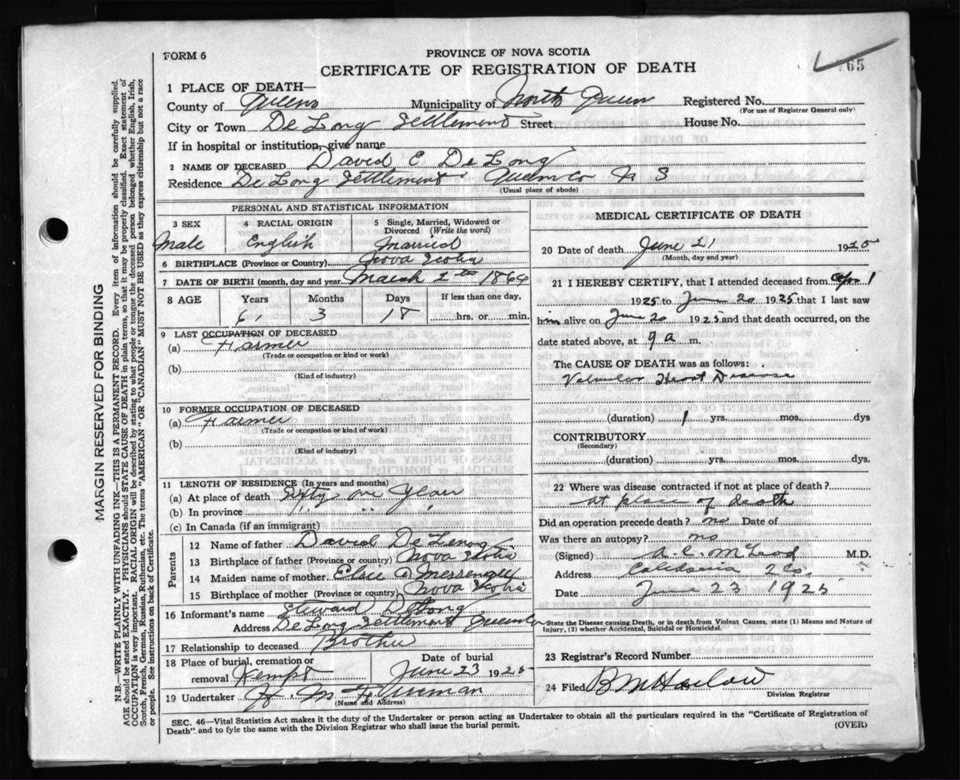 FORM 6
PROVINCE OF NOVA SCOTIA
CERTIFICATE OF REGISTRATION OF DEATH
65
1 PLACE OF DEATH—
County of Queens Municipality of North Queen Registered No.
(For use of Registrar General only)
City or Town De Long Settlement Street House No.
If in hospital or institution, give name
2 NAME OF DECEASED David E De Long
Residence De Long Settlement Queen Co N S
(Usual place of abode)
PERSONAL AND STATISTICAL INFORMATION
3 SEX Male
4 RACIAL ORIGIN English
5 Single, Married, Widowed or Divorced (Write the word) Married
6 BIRTHPLACE (Province or Country) Nova Scotia
7 DATE OF BIRTH (month, day and year) March 1864
8 AGE Years Months Days If less than one day,
61 3 18 hrs. or min.
9 LAST OCCUPATION OF DECEASED
(a) Farmer
(Trade or occupation or kind or work)
(b)
(Kind of industry)
10 FORMER OCCUPATION OF DECEASED
(a) Farmer
(Trade or occupation or kind or work)
(b)
(Kind of industry)
11 LENGTH OF RESIDENCE (In years and months)
(a) At place of death Sixty one Years
(b) In province " " "
(c) In Canada (if an immigrant)
Parents
12 Name of father David De Long
13 Birthplace of father (Province or country) Nova Scotia
14 Maiden name of mother Elsie A Messenger
15 Birthplace of mother (Province or country) Nova Scotia
16 Informant's name Edward DeLong
Address De Long Settlement Queen Co
17 Relationship to deceased Brother
18 Place of burial, cremation or removal Kempt
Date of burial June 23 1925
19 Undertaker H. M. Freeman
(Name and Address)
MEDICAL CERTIFICATE OF DEATH
20 Date of death June 21 1925
(Month, day and year)
21 I HEREBY CERTIFY, that I attended deceased from Apr 1
1925 to June 20 1925 that I last saw
him alive on June 20 1925 and that death occurred, on
date stated above, at 9 a m.
The CAUSE OF DEATH was as follows:
Valvular Heart Disease
(duration) 1 yrs. mos. dys
CONTRIBUTORY
(Secondary)
(duration) yrs. mos. dys.
22 Where was disease contracted if not at place of death?
at place of death
Did an operation precede death? no Date of
Was there an autopsy? no
(Signed) A. C. McLeod M.D.
Address Caledonia Q Co.
Date June 23 1925
State the Disease causing Death, or in death from Violent Causes, state (1) Means and Nature of Injury, (2) whether Accidental, Suicidal or Homicidal.
23 Registrar's Record Number
24 Filed B M Harlow
Division Registrar
SEC. 46—Vital Statistics Act makes it the duty of the Undertaker or person acting as Undertaker to obtain all the particulars required in the "Certificate of Registration of
Death" and to fyle the same with the Division Registrar who shall issue the burial permit. (OVER)
MARGIN RESERVED FOR BINDING
N.B.—WRITE PLAINLY WITH UNFADING INK—THIS IS A PERMANENT RECORD. Every item of information should be carefully supplied.
AGE should be stated EXACTLY. PHYSICIANS should STATE CAUSE OF DEATH in plain terms, so that it may be properly classified. Exact statement of
OCCUPATION is very important. RACIAL ORIGIN will be described by stating to what people or tongue the deceased person belonged whether English, Irish,
Scotch, French, German, Russian, Ruthenian, etc. The terms "AMERICAN" OR "CANADIAN" MUST NOT BE USED as they express citizenship but not a race
or people. See instructions on back of Certificate.